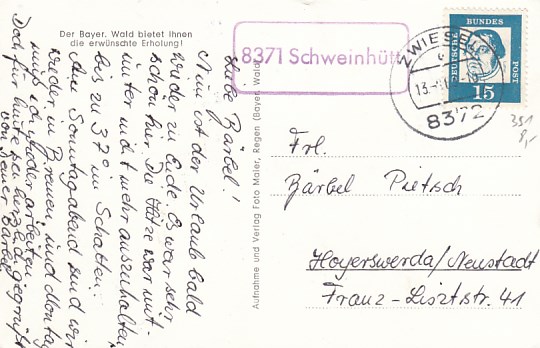 Der Bayer. Wald bietet Ihnen
die erwünschte Erholung!
Liebe Bärbel!
Nun ist der Urlaub bald
wieder zu Ende. Es war sehr
schön hier. Die Hitze war mit-
unter nicht mehr auszuhalten
bis zu 37° im Schatten.
Am Sonntagabend sind wir
wieder in Bremen, und Montag
muß ich wieder arbeiten.
Doch für heute sei herzlich gegrüßt
von Deiner Bärbel
Aufnahme und Verlag Foto Maier, Regen (Bayer. Wald)
8371 Schweinhütt
ZWIESEL
13.
8372
DEUTSCHE BUNDESPOST
15
351
8,-
Frl.
Bärbel Pietsch
Hoyerswerda/Neustadt
Franz-Lisztstr. 41